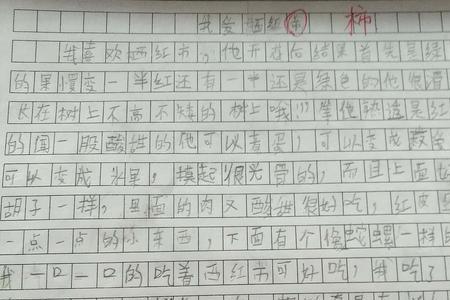 我爱西红 柿
我喜欢西红书，他开花后结果首先是绿
的果慢变一半红还有一半还是绿色的他很
长在树上不高不矮的树上哦!!!等他熟透是红
的闻一股酸甜的他可以者蛋，可以变成
可以变成水果，摸起很光骨的，而且上面
胡子一样，里面的肉又酸甜很好吃，红皮
一点一点的东西，下面有个像蛇螺一样的
我一口一口的吃着西红书可好吃，我吃了